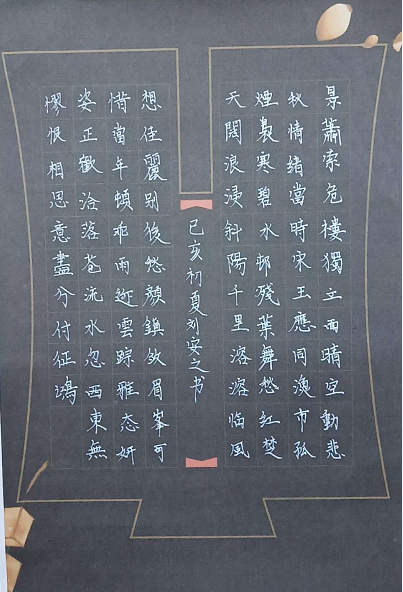 景蕭索危樓獨立面晴空動悲
秋情緒當時宋玉應同漁市孤
煙裊寒碧水邨殘葉舞愁紅楚
天闊浪浸斜陽千里溶溶临風
己亥初夏刘安之书
想佳麗别後愁顏鎮敛眉峯可
惜當年頓乖雨迹雲踪雅态妍
姿正歡洽落花流水忽西東無
憀恨相思意盡分付征鴻